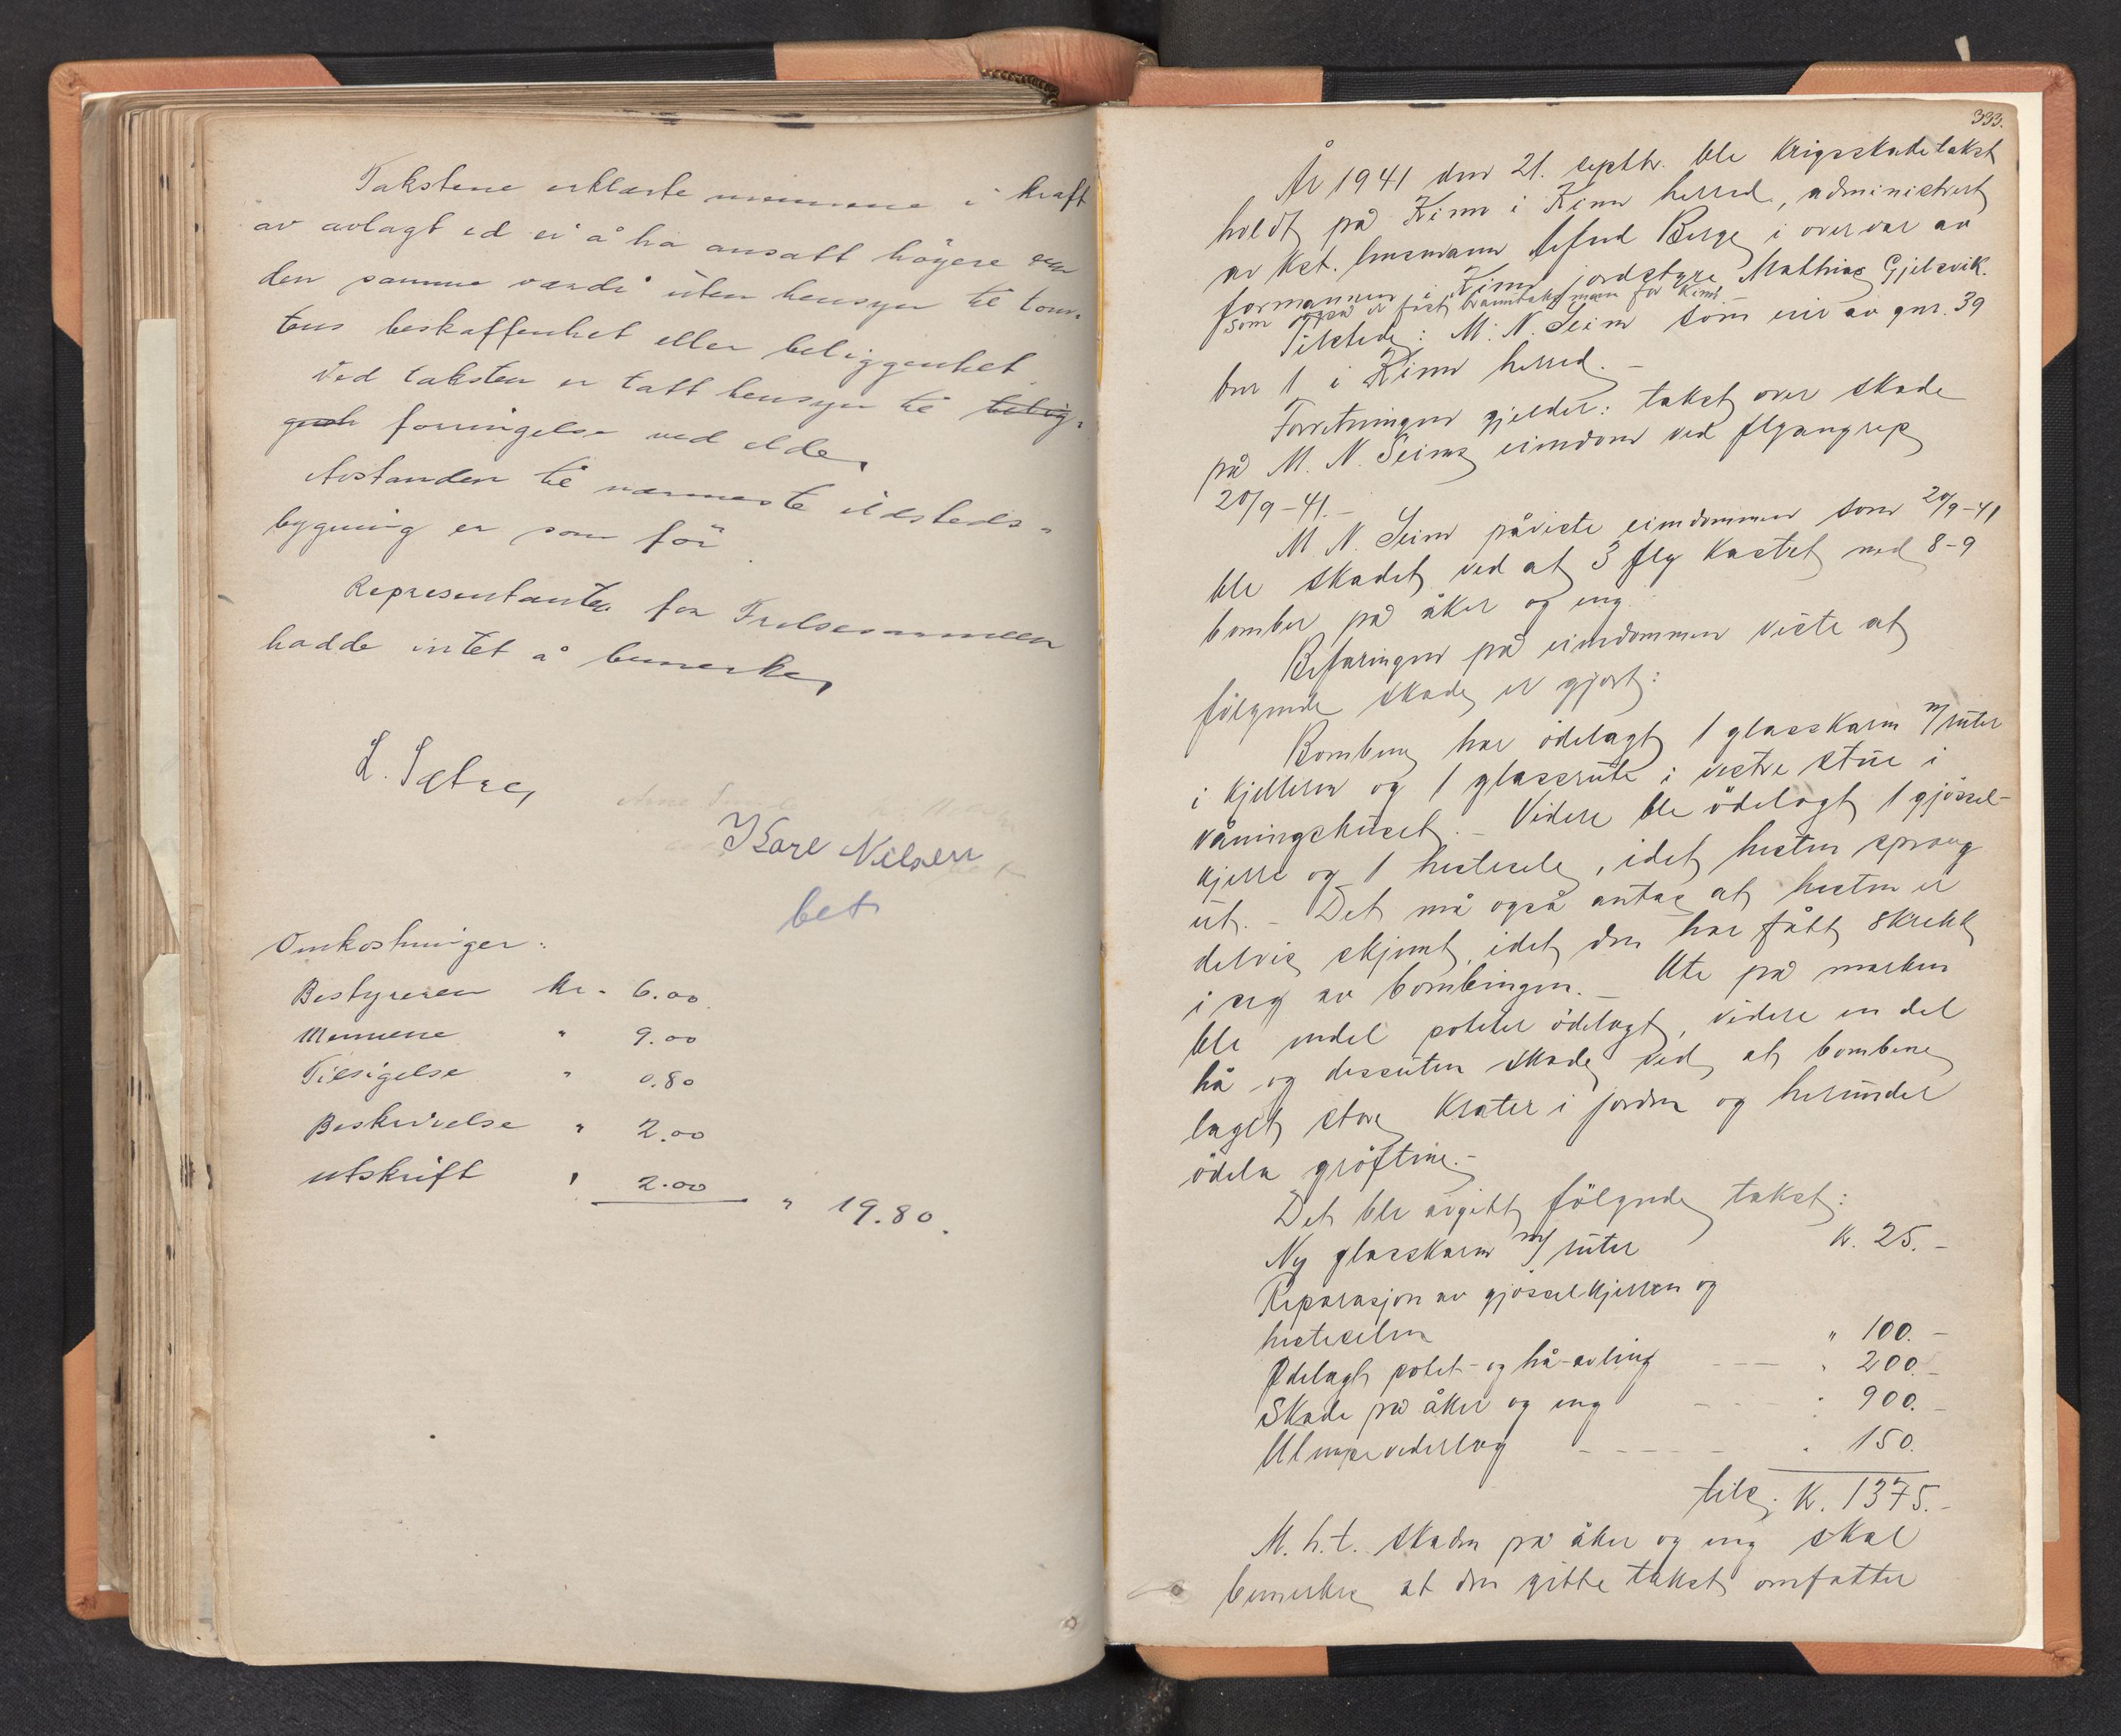 Takstene erklærte mennene i kraft
av avlagt ed ei å ha ansatt høyere enn
den samme værdi uten hensyn til tom-
tens beskaffenhet eller beliggenhet.
Ved taksten er tatt hensyn til
forringelse ved elde.
Avstanden til nærmeste ildsteds-
bygning er som før
Representanten for Frelsesarmeen
hadde intet å bemerke,
L. Sætre,
Kåre Nilsen
bet
Omkostninger:
Bestyreren kr. 6.00
Mennene " 9.00
Tilsigelse " 0.80
Beskrivelse " 2.00
utskrift " 2.00 " 19.80.
333.
År 1941 den 21. septbr. ble krigsskadetakst
holdt på Kinn i Kinn herred, administrert
av kst. lensmann Berge i overvær av
formannen i Kinn jordstyre, Mathias Gjelsvik.
som også er fast branntakstmann for Kinn
Tilstede: M. N. Seim som eier av gnr. 39
bnr 1 i Kinn herred. -
Forretningen gjelder: takst over skade
på M. N. Seims eiendom ved flyangrep
20/9-41. -
M. N. Seim påviste eiendommen som 20/9-41
ble skadet ved at 3 fly kastet ned 8-9
bomber på åker og eng.
Befaringen på eiendommen viste at
følgende skade er gjort:
Bombene har ödelagt 1 glasskarm m/ruter
i kjelleren og 1 glassrute i vestre stue i
våningshuset. - Videre ble ödelagt 1 gjössel-
kjerre og 1 hestesele, idet hesten sprang
ut. - Det må også antas at hesten er
delvis skjemt, idet den har fått skrekk
i seg av bombingen. - Ute på marken
ble endel poteter ödelagt, videre en del
hå og dessuten skade ved at bombene
laget store krater i jorden og herunder
ödela gröftene. -
Det ble avgitt fölgende takst:
Ny glasskarm m/ ruter kr. 25. -
Reparasjon av gjösselkjerren og
hesteselen " 100. -
Ødelagt potet- og hå-avling - - - " 200. -
Skade på åker og eng - - - " 900. -
Ulempevederlag - - - - - " 150.
tils. kr. 1375. -
M. h. t. skaden på åker og eng skal
bemerkes at den gitte takst omfatter